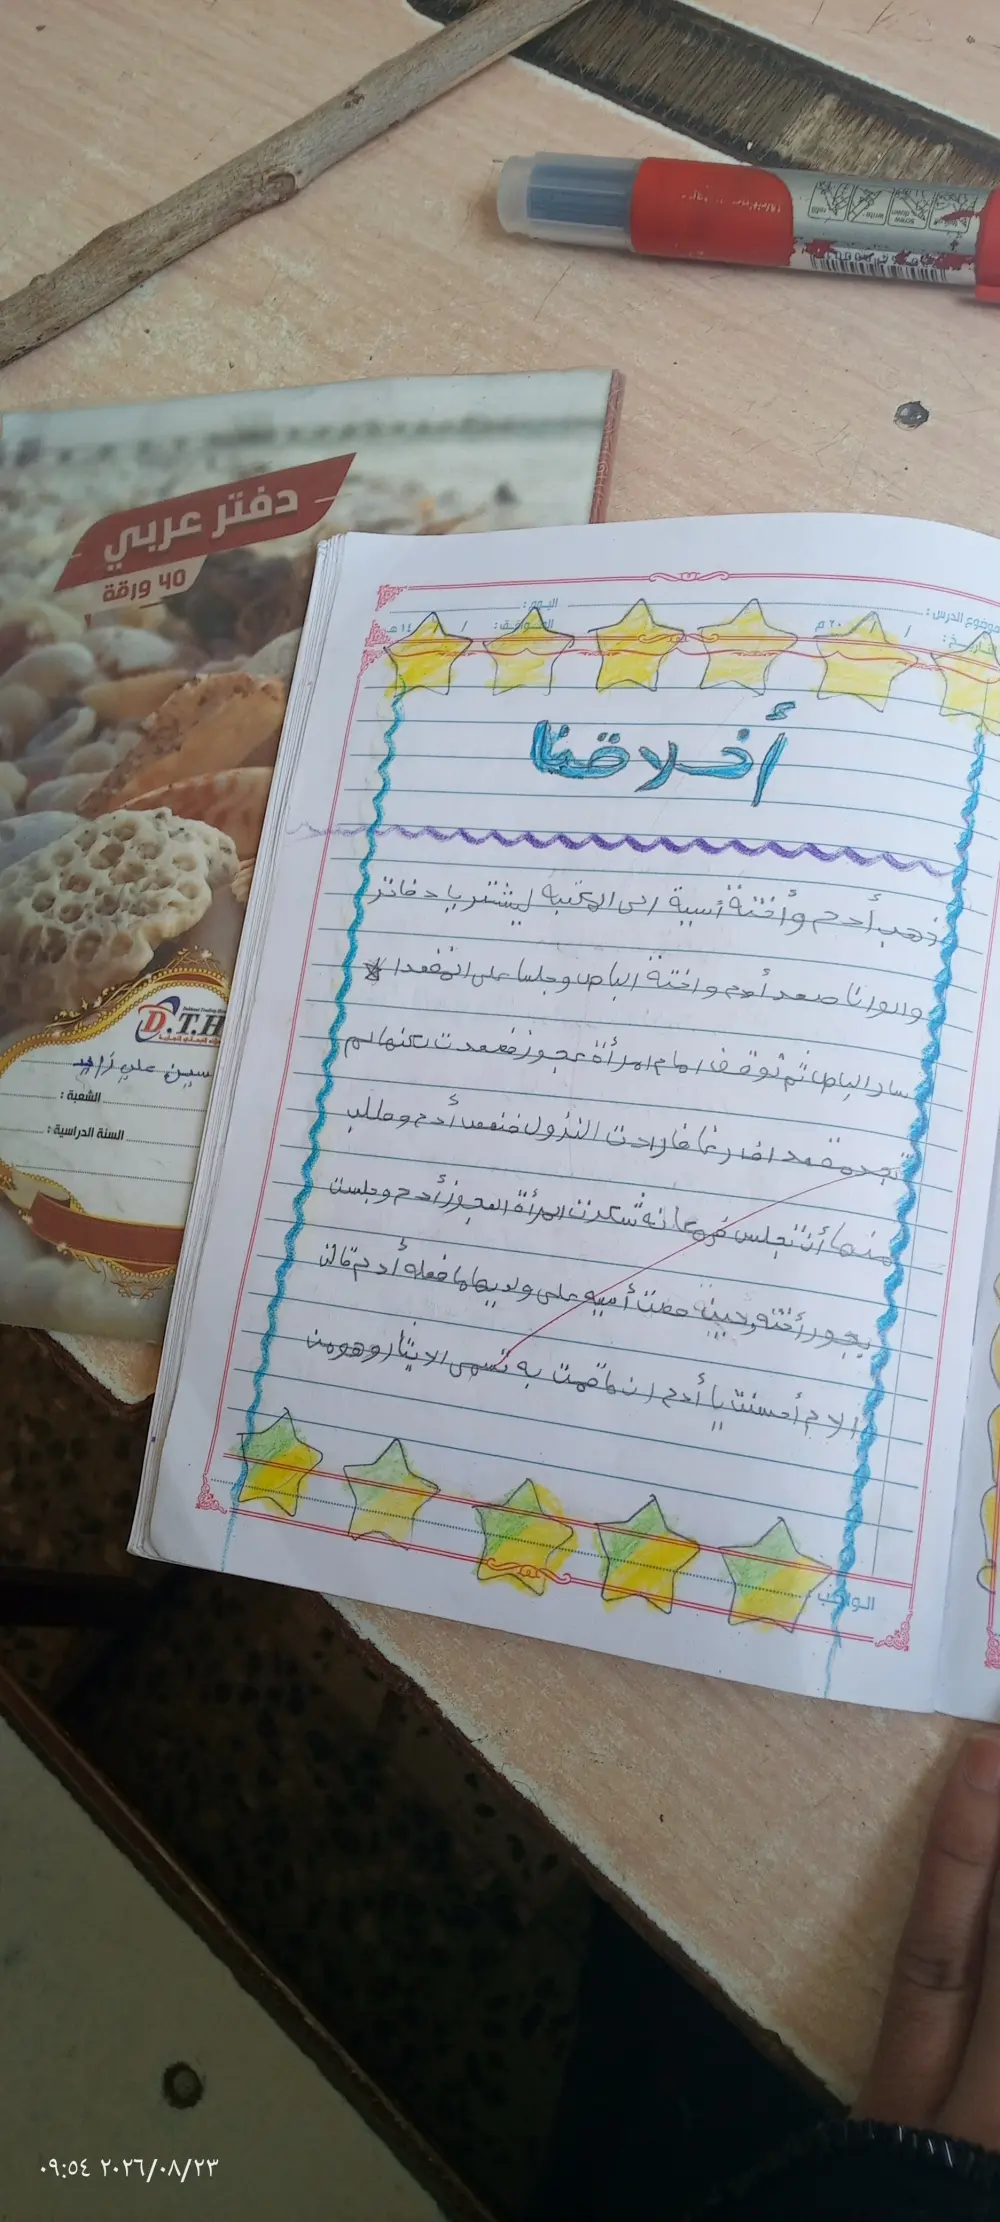 دفتر عربي
٤٥ ورقة
D.T.H
علي زاهد
الشعبة :
السنة الدراسية :
موضوع الدرس :
اليوم :
٢٠ م
١٤ هـ
أخلاقنا
ذهب أدم وأختة أسية الى المكتبه ليشتريا دفاتر
والوانا صعد أدم واختة الباص وجلسا على المقعد
سار الباص ثم توقف امام امرأة عجوز فصعدت لكنها لم
تجد مقعد فارغا فارادت النزول فنهض أدم وطلب
منها أن تجلس في مكانه شكرت المرأة العجوز أدم وجلست
بجور أختة وحين حكت أسيه على ولديها ما فعله أدم قالت
الام أحسنت يا أدم ان ما قمت به تسمى الايثار وهو من
الواجب :
٢٠٢٦/٠٨/٢٣ ٠٩:٥٤